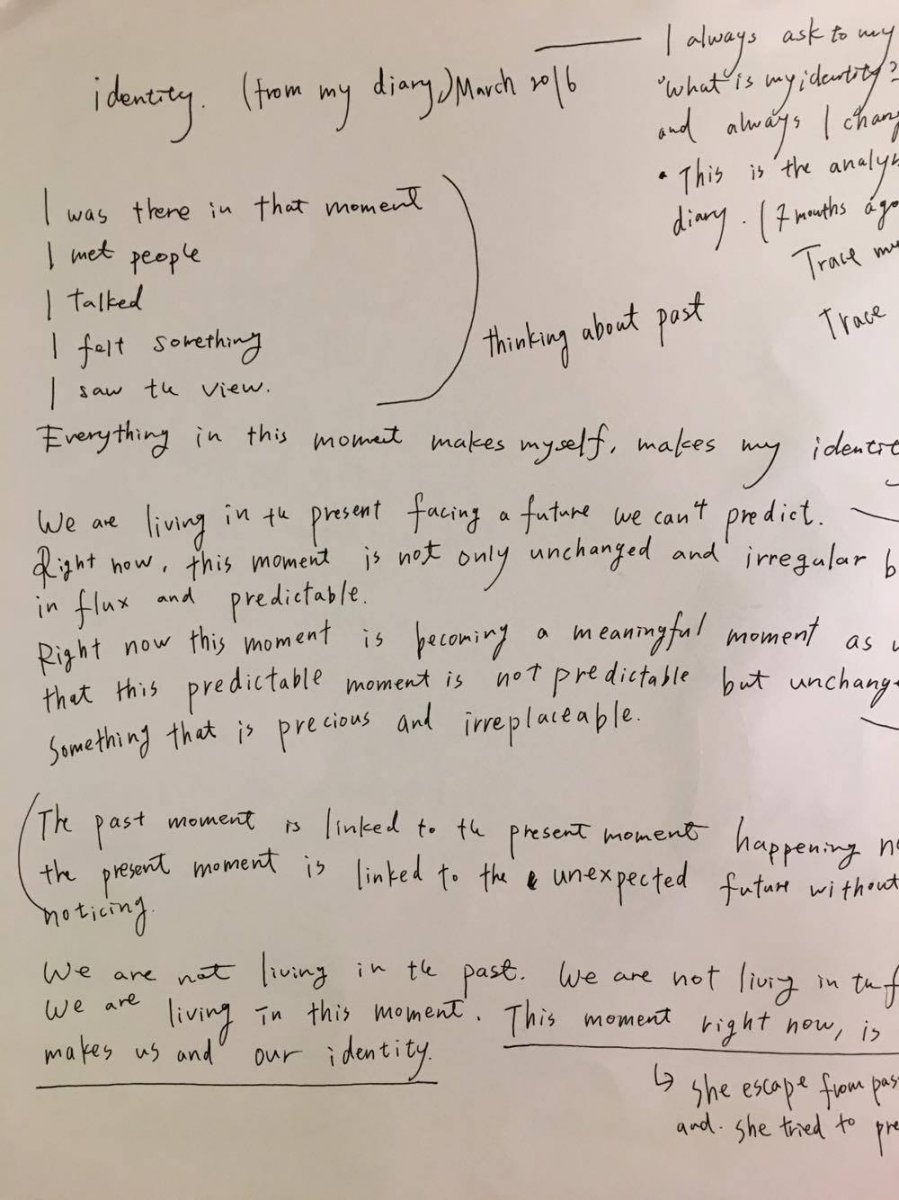 identity. (from my diary,) March 2016
I always ask to my
"What is my identity?
and always I chang
• This is the analys
diary. (7 months ago
Trace
Trace
I was there in that moment
I met people
I talked
I felt something
I saw the view.
thinking about past
Everything in this moment makes myself, makes my identit
We are living in the present facing a future we can't predict.
Right now, this moment is not only unchanged and irregular b
in flux and predictable.
Right now this moment is becoming a meaningful moment as
that this predictable moment is not predictable but unchang
Something that is precious and irreplaceable.
The past moment is linked to the present moment happening n
the present moment is linked to the unexpected future without
noticing.
We are not living in the past. We are not livig in the f
We are living in this moment. This moment right now, is
makes us and our identity.
↳ she escape from pas
and. she tried to pre